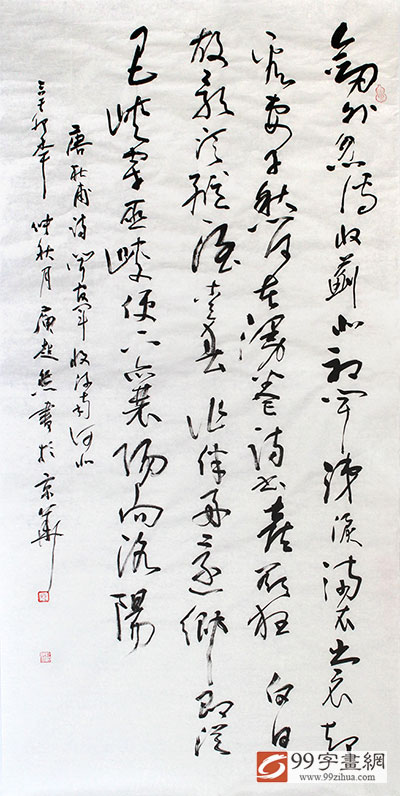 劍外忽傳收薊北初聞涕淚滿衣裳却
看妻子愁何在漫卷詩書喜欲狂白日
放歌須縱酒青春作伴好還鄉即從
巴峽穿巫峽便下襄陽向洛陽
唐杜甫詩聞官軍收河南河北
仲秋月超然書於京華
99字畫網
www.99zihua.com